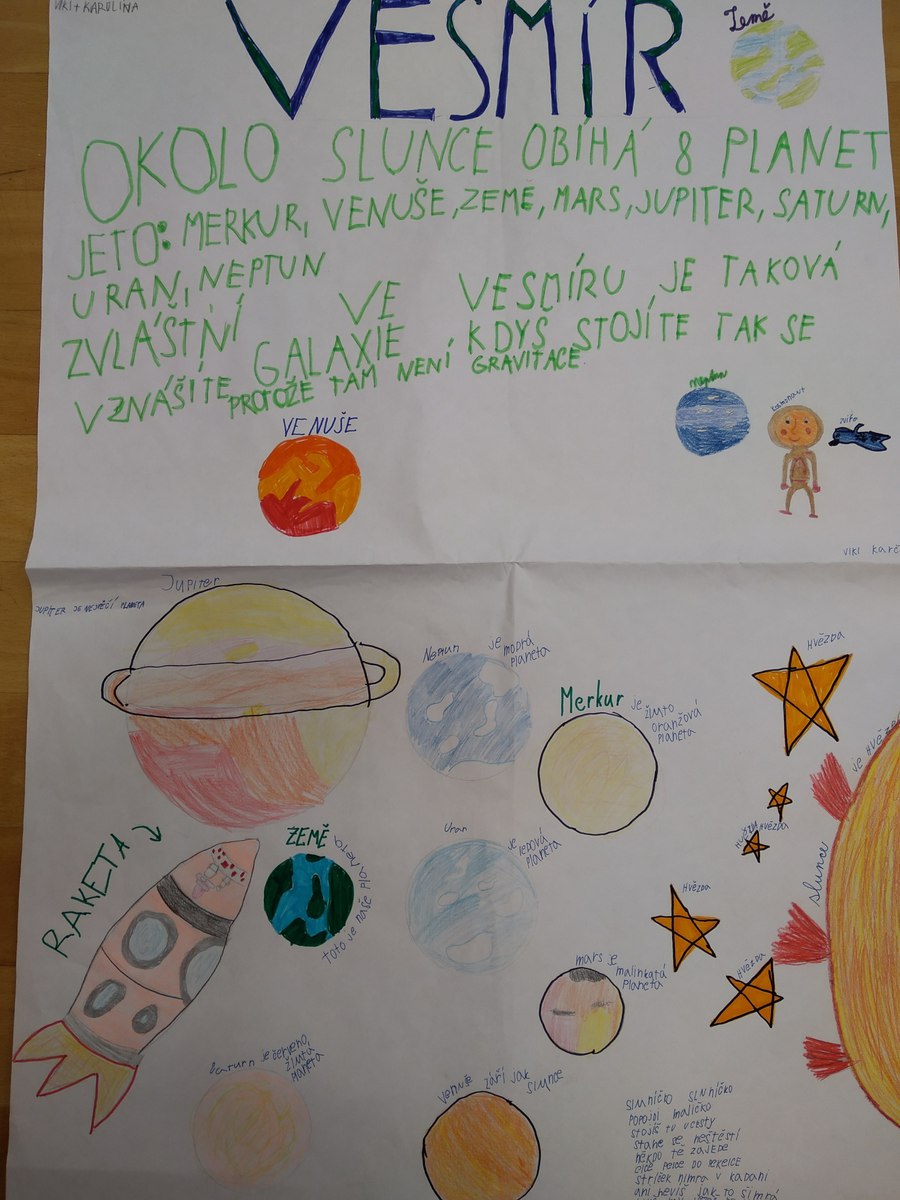 VIKI + KAROLÍNA
VESMÍR
Země
OKOLO SLUNCE OBÍHÁ 8 PLANET
JETO: MERKUR, VENUŠE, ZEMĚ, MARS, JUPITER, SATURN,
URAN, NEPTUN
VE VESMÍRU JE TAKOVÁ
ZVLÁŠTŇÍ GALAXIE KDYŠ STOJÍTE TAK SE
VZNÁŠÍTE PROTOŽE TAM NENÍ GRAVITACE
VENUŠE
Neptun
kosmonaut
zvíře
VIKI
Jupiter
JUPITER JE NEJVĚČÍ PLANETA
Neptun je modrá
planeta
Merkur je
žluto
oranžová
planeta
HVĚZDA
je HVĚZDA
HVĚZDA
HVĚZDA
slunce
RAKETA
ZEMĚ
toto je naše planeta
Uran je
ledová
planeta
HVĚZDA
HVĚZDA
mars je
malinkatá
planeta
Saturn je červeno,
žlutá
planeta
Venuše září jak
slunce
SLUNÍČKO SLUNÍČKO
POPOJDI MALIČKO
STOJÍŠ TU U CESTY
STANE SE NEŠTĚSTÍ
NĚKDO TĚ ZAJEDE
DO
STRÝČEK NIMRA V
ANI NEVÍŠ JAK TO ŠIMRÁ